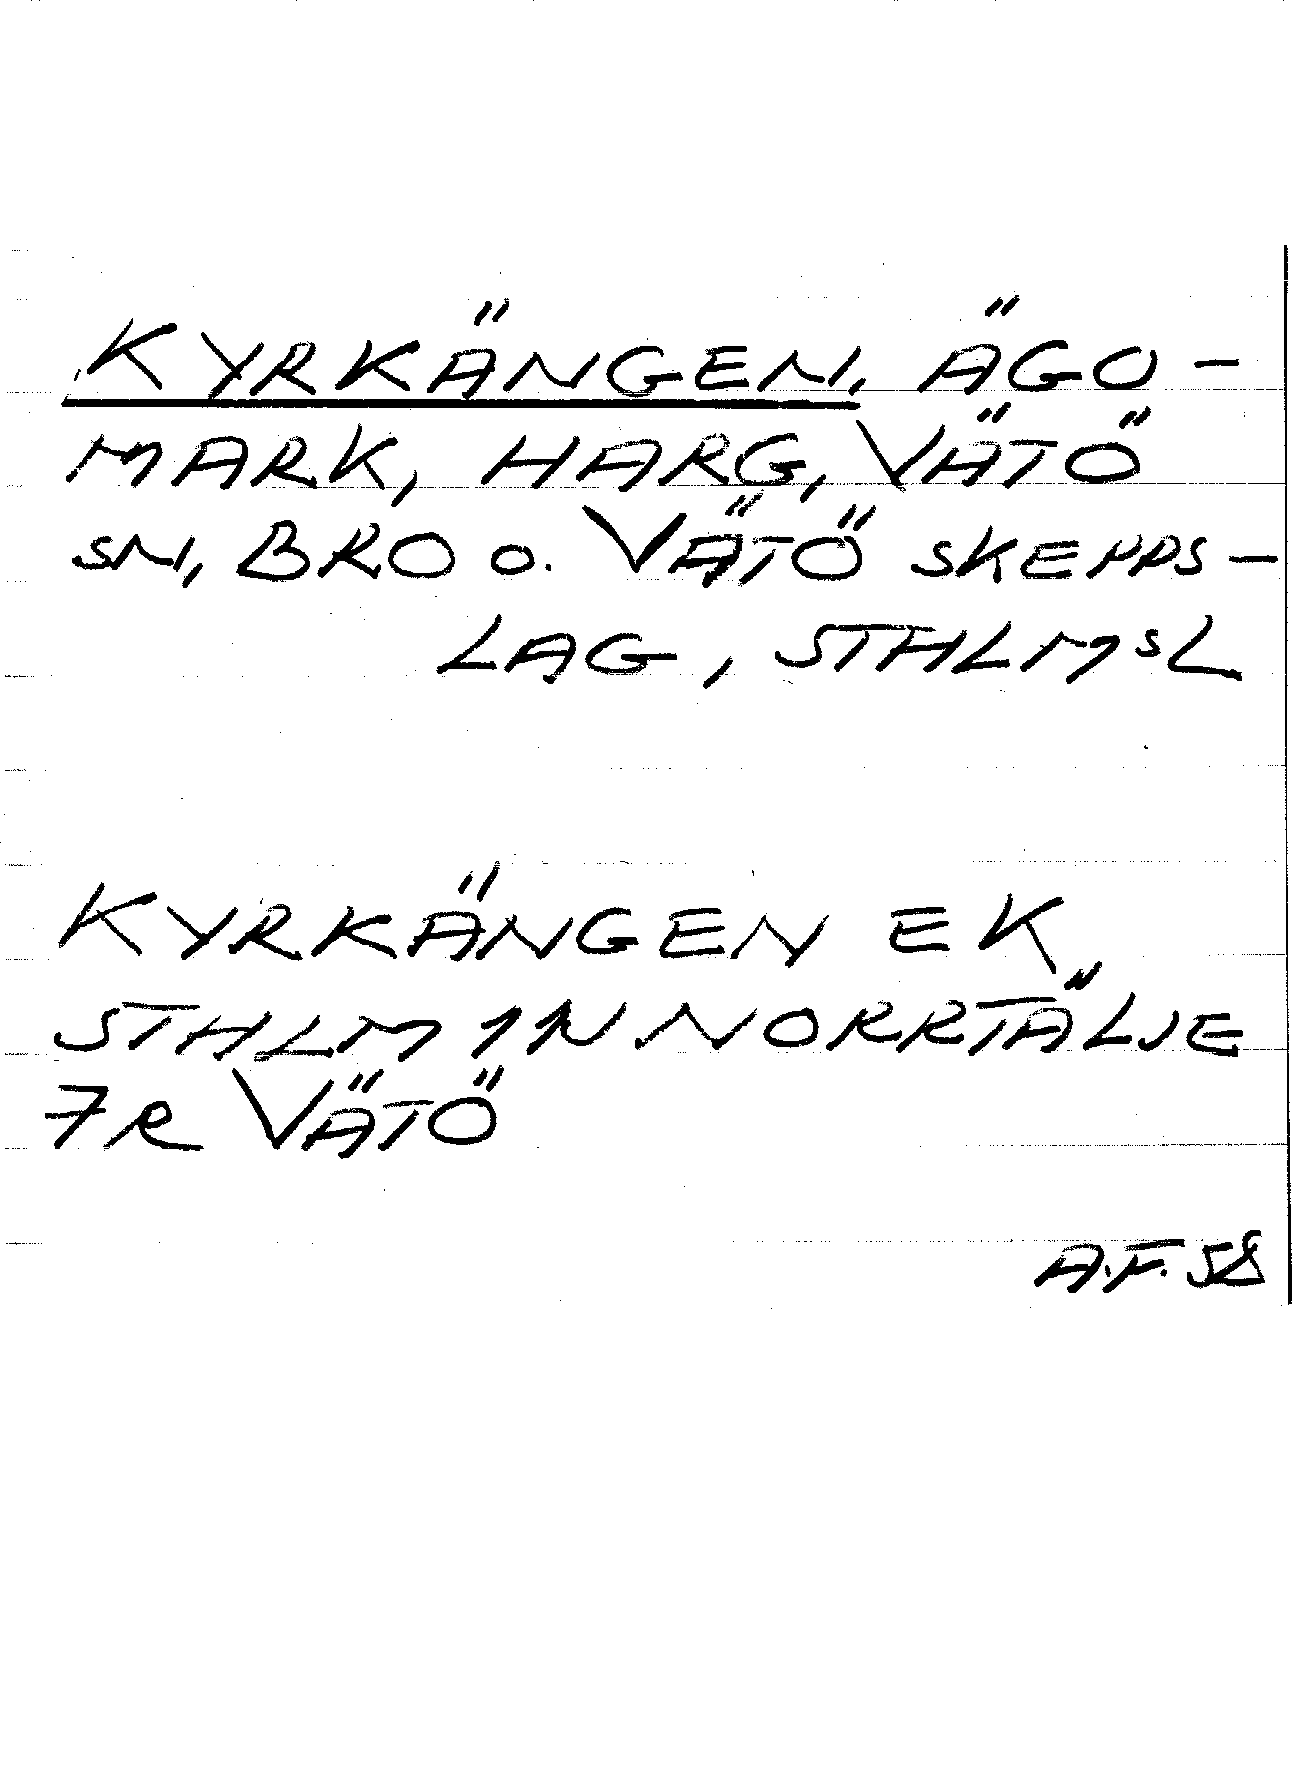 KYRKÄNGEN, ÄGO-
MARK, HARG, VÄTÖ
SN, BRO O. VÄTÖ SKEPPS-
LAG, STHLMSL
KYRKÄNGEN EK
STHLM 11N NORRTÄLJE
7R VÄTÖ
A.F. 58